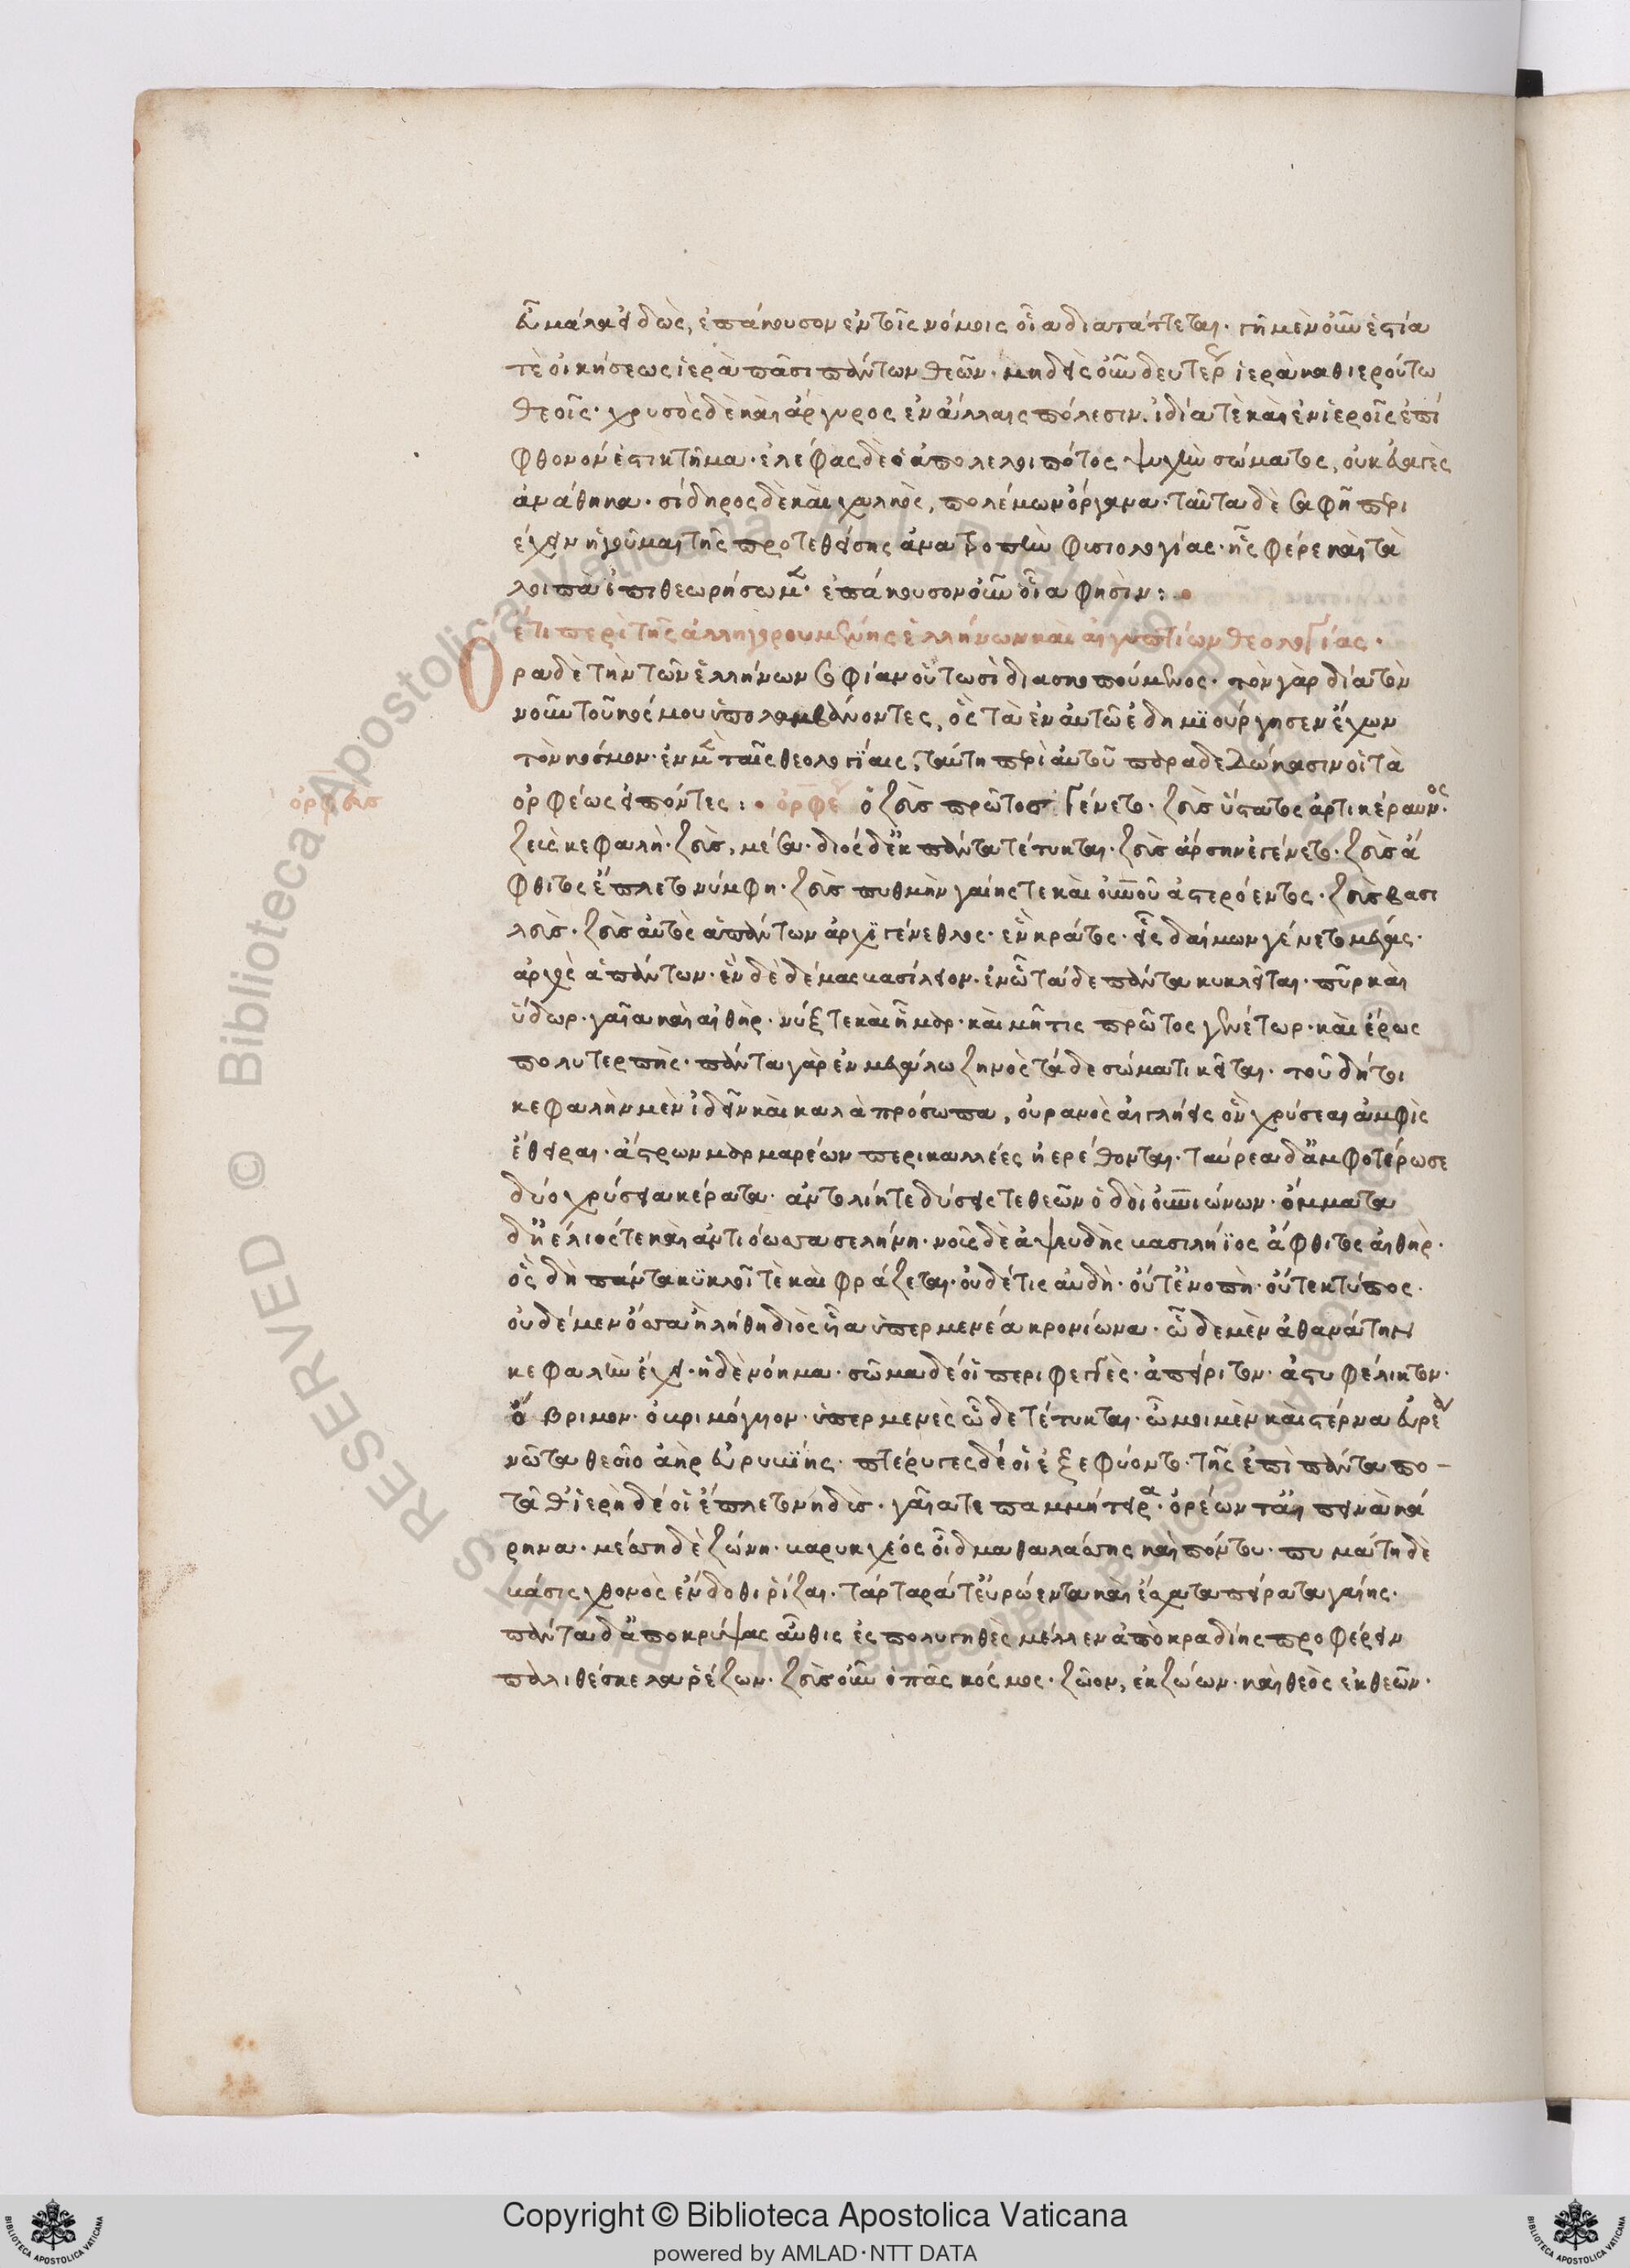 εὖ μάλα εἰδὼς, ἐπάκουσον ἐν τοῖς νόμοις οἷα διατάττεται· γῆ μὲν οὖν ἑστία
τὲ οἰκήσεως ἱερὰ πᾶσι πάντων θεῶν· μηδεὶς οὖν δευτέρως ἱερὰ καθιερούτω
θεοῖς· χρυσὸς δὲ καὶ ἄργυρος ἐν ἄλλαις πόλεσιν. ἰδία τὲ καὶ ἐν ἱεροῖς ἐπί
φθονόν ἐστι κτῆμα· ἐλέφας δὲ ἀπολελοιπότος ψυχὴν σώματος, οὐκ εὐαγὲς
ἀνάθημα· σίδηρος δὲ καὶ χαλκὸς, πολέμων ὄργανα· ταῦτα δὲ σαφῆ περι
έχειν ἡγοῦμαι τῆς προτεθείσης ἀνατροπὴν φυσιολογίας· ἧς φέρε καὶ τὰ
λοιπὰ ἐπιθεωρήσωμεν· ἐπάκουσον οὖν οἷα φησὶν:
ἔτι περὶ τῆς ἀλληγορουμένης ἑλλήνων καὶ αἰγυπτίων θεολογίας·
Ορα δὲ τὴν τῶν ἑλλήνων σοφίαν οὑτωσὶ διασκοπούμενος· τὸν γὰρ δία τὸν
νοῦν τοῦ κόσμου ὑπολαμβάνοντες, ὃς τὰ ἐν αὐτῶ ἐδημϊούργησεν ἔχων
τὸν κόσμον· ἐν μὲν ταῖς θεολογίαις, ταύτη περὶ αὐτοῦ παραδεδώκασιν οἱ τὰ
ὀρφεὺς
ὀρφέως εἰπόντες: ὀρφεὺς ὁ ζεὺς πρῶτος γένετο· ζεὺς ὕστατος ἀρτικέραυνος·
ζεὺς κεφαλὴ· ζεὺς, μέσα· διὸς δ' ἐκ πάντα τέτυκται· ζεὺς ἄρσην ἐγένετο· ζεὺς ἄ
φθιτος ἔπλετο νύμφη· ζεὺς πυθμὴν γαίης τε καὶ οὐρανοῦ ἀστερόεντος· ζεὺς βασι
λεὺς· ζεὺς αὐτὸς ἁπάντων ἀρχϊγένεθλος· ἓν κράτος· εἷς δαίμων γένετο μέγας·
ἀρχὸς ἁπάντων· ἓν δὲ δέμας βασίλειον· ἐν ὧ τάδε πάντα κυκλεῖται· πῦρ καὶ
ὕδωρ· γαῖα καὶ αἰθὴρ· νύξ τε καὶ ἦμαρ· καὶ μῆτις πρῶτος γενέτωρ· καὶ ἔρως
πολυτερπὴς· πάντα γὰρ ἐν μεγάλω ζηνὸς τάδε σώματι κεῖται· τοῦ δή τοι
κεφαλὴν μὲν ἰδεῖν καὶ καλὰ πρόσωπα, οὐρανὸς αἰγλήεις ὃν χρύσεαι ἀμφὶς
ἔθειραι· ἄστρων μαρμαρέων περικαλλέες ἠερέθονται· ταύρεα δ' ἀμφοτέρωσε
δύο χρύσεια κέρατα· ἀντολίη τε δύσις τε θεῶν ὁδοὶ οὐρανιώνων· ὄμματα
δ' ἠέλιός τε καὶ ἀντιόωσα σελήνη· νοῦς δὲ ἀψευδὴς βασιλήϊος ἄφθιτος αἰθὴρ·
ὃς δὴ πάντα κϋκλοῖ τὲ καὶ φράζεται· οὐδέ τις αὐδὴ· οὔτ' ἐνοπὴ· οὔτε κτύπος·
οὐδέ μεν ὄσσα ἣ λήθη διὸς ὦτα ὑπερμενέα κρονίωνα· ὧδε μὲν ἀθανάτην
κεφαλὴν ἔχει· ἠδὲ νόημα· σῶμα δέ οἱ περιφεγγὲς· ἀπείριτον· ἀστυφέλικτον·
ὄβριμον· ὀβριμόγυιον· ὑπερμενὲς ὧδε τέτυκται· ὦμοι μὲν καὶ στέρνα εὐρέα
νῶτα θεοῖο ἀὴρ εὐρυβίης· πτέρυγες δέ οἱ ἐξεφύοντο· τῆς ἐπὶ πάντα πο-
τᾶθ' ἱερὴ δέ οἱ ἔπλετο νηδὺς· γαῖα τε παμμήτειρα· ὀρέων τ' αἰπεινὰ κά
ρηνα· μέσση δὲ ζώνη· βαρυηχέος οἶδμα θαλάσσης καὶ πόντου· πυμάτη δὲ
βάσις χθονὸς ἔνδοθι ῥίζαι· τάρταρά τ' εὐρώεντα καὶ ἔσχατα πείρατα γαίης·
πάντα δ' ἀποκρύψας αὖθις ἐς πολυγηθὲς μέλλεν ἀπὸ κραδίης προφέρειν
πάλι θέσκελα ῥέζων· ζεὺς οὖν ὁ πᾶς κόσμος· ζῶον, ἐκ ζώων· καὶ θεὸς ἐκ θεῶν·
Copyright © Biblioteca Apostolica Vaticana
powered by AMLAD·NTT DATA